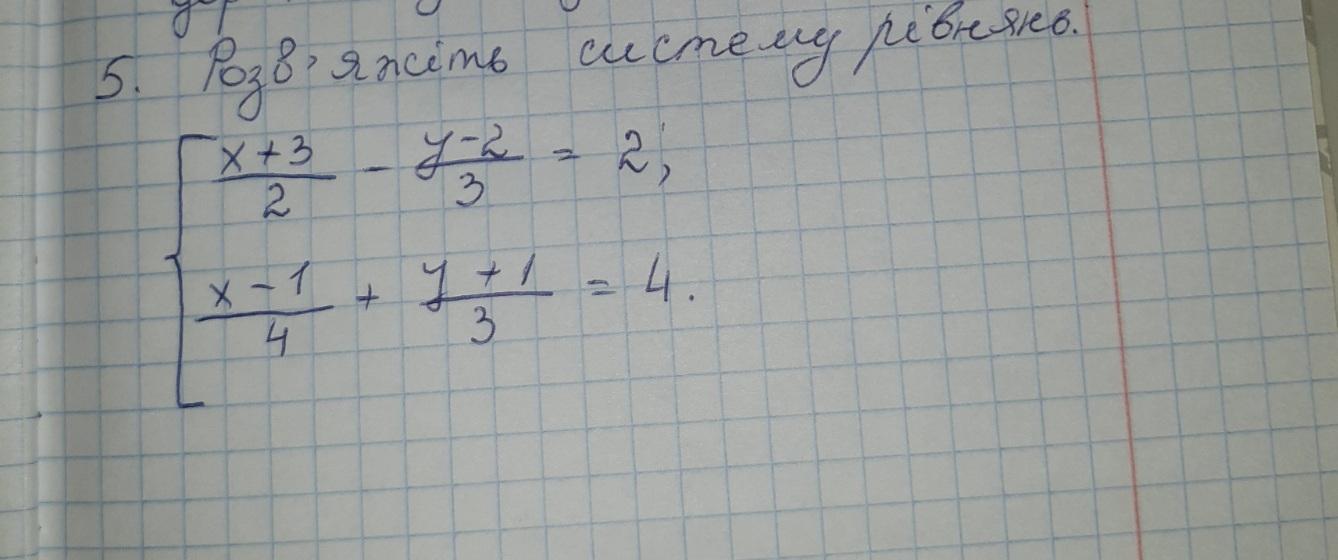 5. Розв'яжіть систему рівнянь.
x+3/2 - y-2/3 = 2;
x-1/4 + y+1/3 = 4.